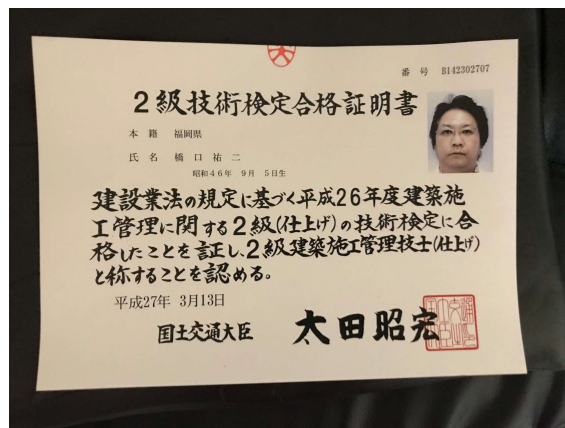 番 号 B142302707
2級技術検定合格証明書
本 籍 福岡県
氏 名 橋口祐二
昭和46年 9月 5日生
建設業法の規定に基づく平成26年度建築施
工管理に関する2級(仕上げ)の技術検定に合
格したことを証し、2級建築施工管理技士(仕上げ)
と称することを認める。
平成27年 3月13日
国土交通大臣 太田昭宏